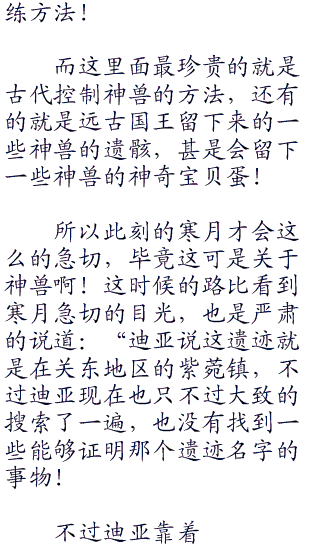 练方法！
而这里面最珍贵的就是
古代控制神兽的方法，还有
的就是远古国王留下来的一
些神兽的遗骸，甚是会留下
一些神兽的神奇宝贝蛋！
所以此刻的寒月才会这
么的急切，毕竟这可是关于
神兽啊！这时候的路比看到
寒月急切的目光，也是严肃
的说道：“迪亚说这遗迹就
是在关东地区的紫菀镇，不
过迪亚现在也只不过大致的
搜索了一遍，也没有找到一
些能够证明那个遗迹名字的
事物！
不过迪亚靠着